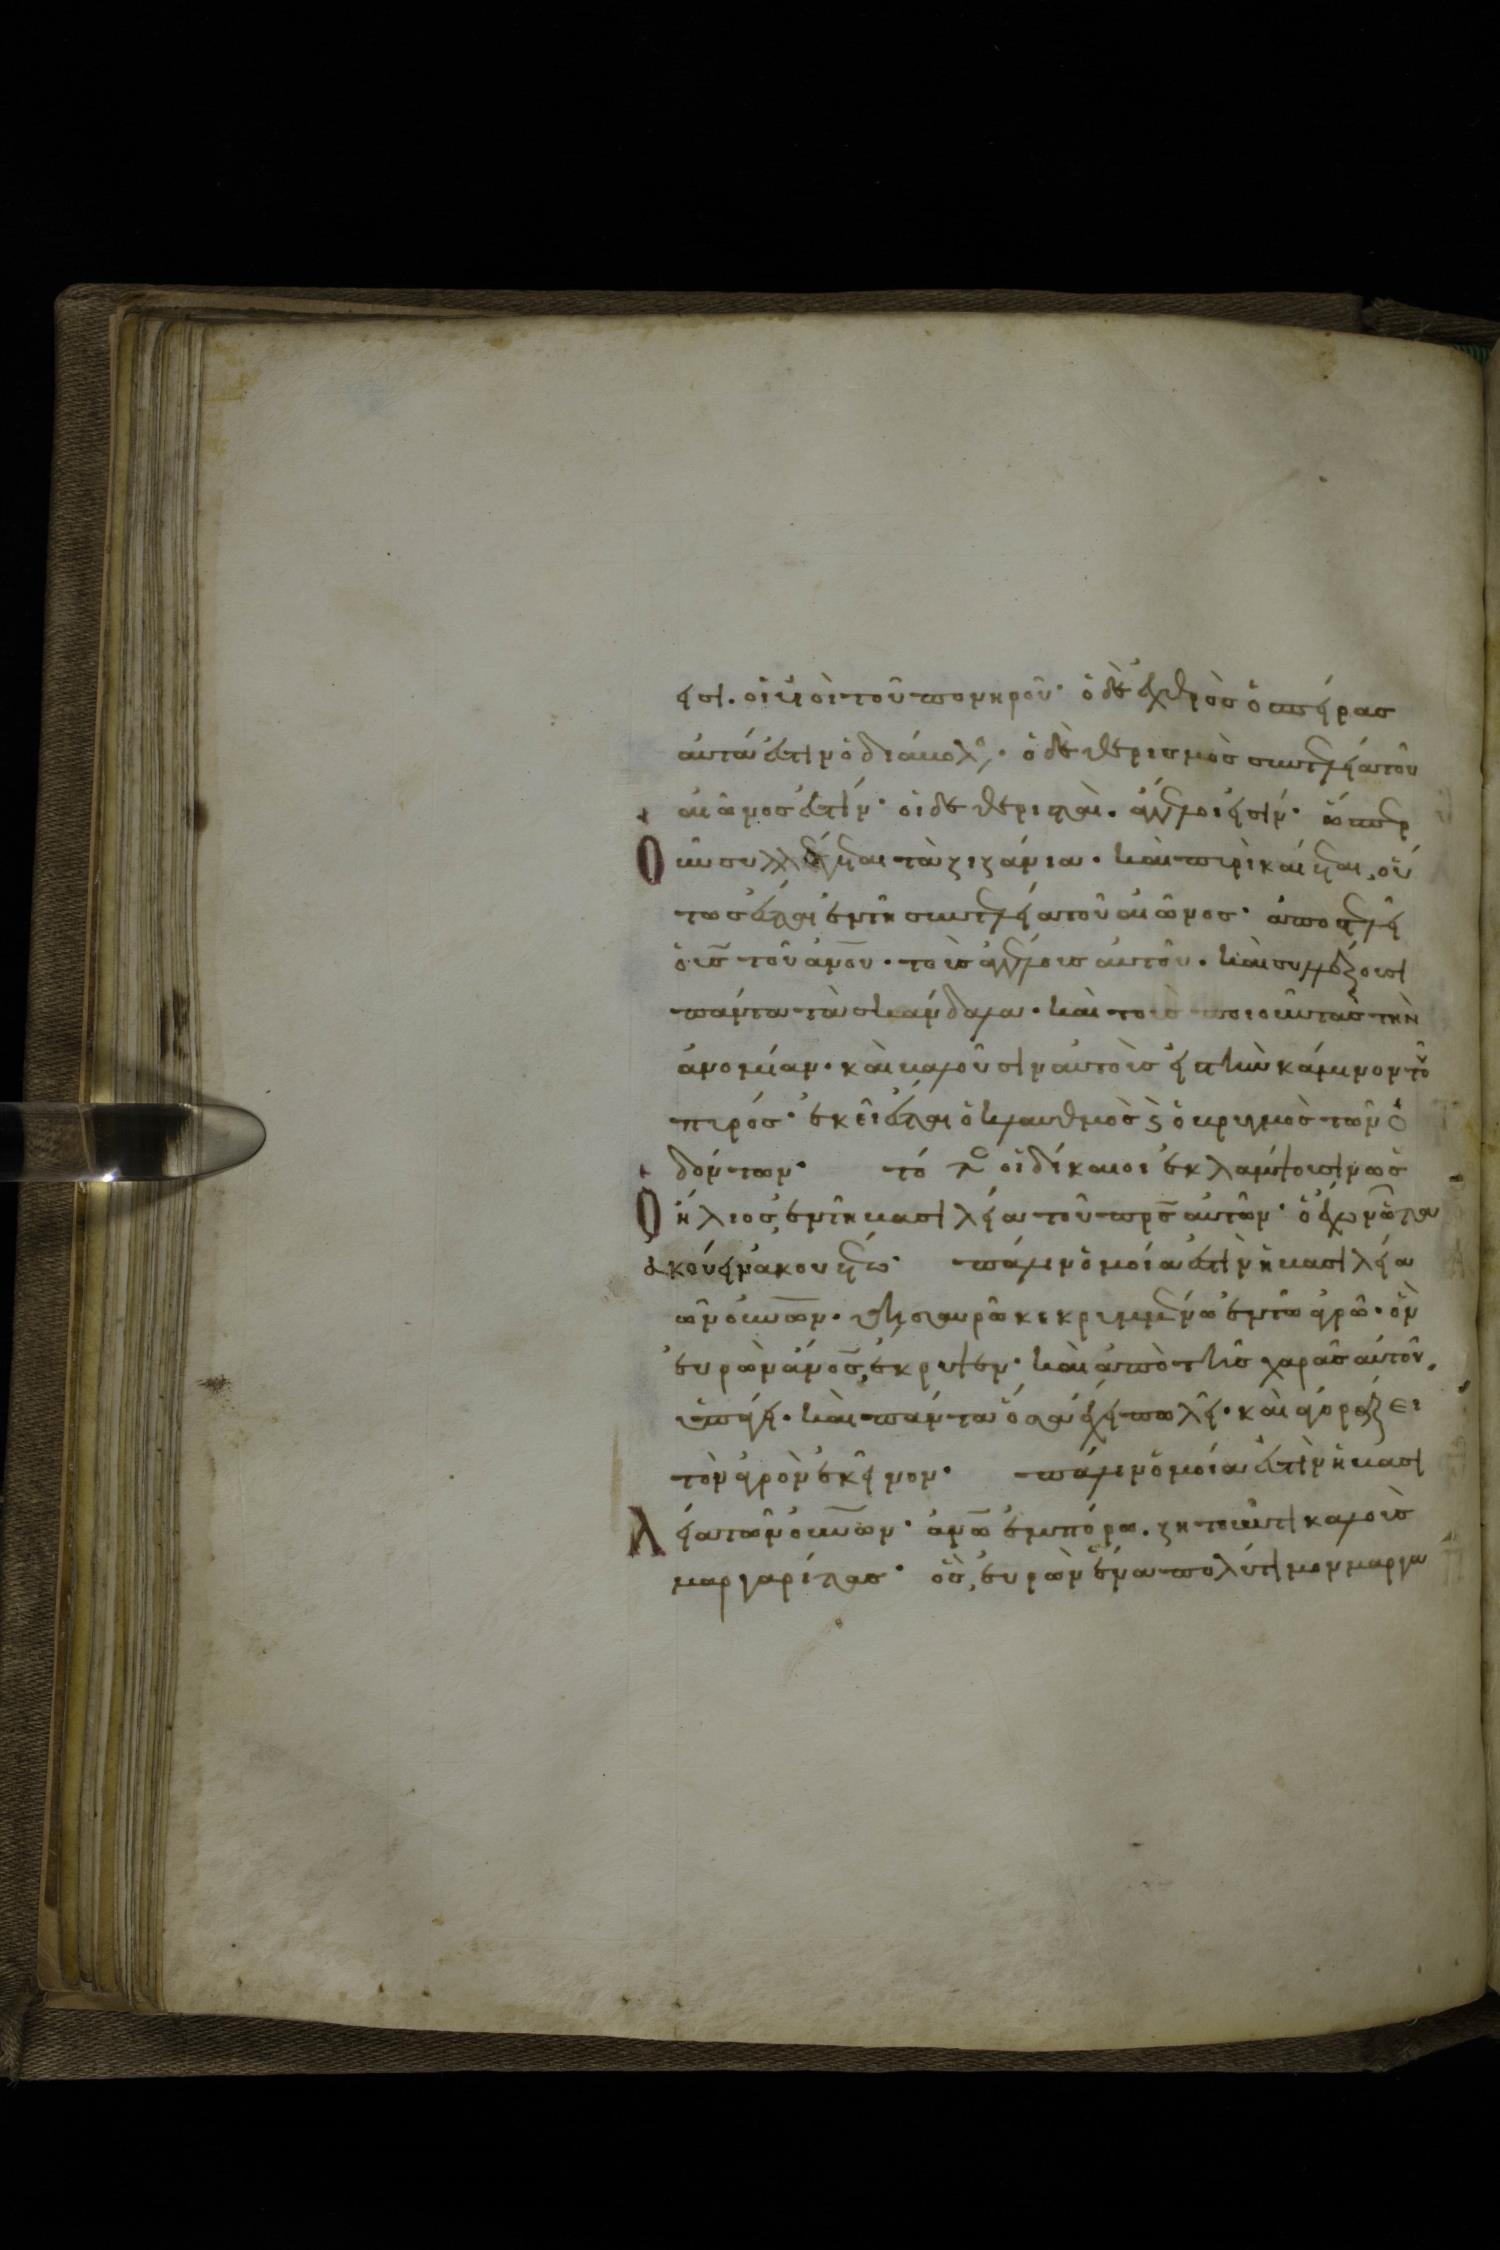 εισι. οἱ υἱοὶ τοῦ πονηροῦ· ὁ δὲ ἐχθρὸς ὁ σπείρας
αὐτά ἐστιν ὁ διάβολ· ὁ δὲ θερισμὸς συντέλεια τοῦ
αἰῶνος ἐστίν· οἱ δὲ θερισταὶ. ἄγγελοι εἰσίν· ὥσπερ
Οὖν συλλέγεται τὰ ζιζάνια. καὶ πυρὶ καίεται, οὕ
τως ἔσται ἐν τῆ συντελεία τοῦ αἰῶνος· ἀποστελεῖ
ὁ υ̅ς̅ τοῦ ἀν̅ου̅. τοὺς ἀγγέλους αὐτοῦ. καὶ συλλέξουσι
πάντα τὰ σκάνδαλα. καὶ τοὺς ποιοῦντας τὴν
ἀνομίαν. καὶ βαλοῦσιν αὐτοὺς εἰς τὴν κάμινον τοῦ
πυρός· ἐκεῖ ἔσται ὁ κλαυθμὸς ϗ ὁ βρυγμὸς τῶν ὀ
δόντων· τότε οἱ δίκαιοι ἐκλάμψουσιν ὡς
Ο ἥλιος, ἐν τῆ βασιλεία τοῦ πρ̅ς̅ αὐτῶν· ὁ ἔχων ὦτα
ἀκούειν ἀκουέτω· πάλιν ὁμοία ἐστὶν ἡ βασιλεία
τῶν οὐν̅ων̅. θησαυρῶ κεκρυμμένω ἐν τῶ ἀγρῶ. ὃν
εὑρὼν ἄν̅ο̅ς̅, ἔκρυψεν· καὶ ἀπὸ τῆς χαρᾶς αὐτοῦ,
ὑπάγει. καὶ πάντα ὅσα ἔχει πωλεῖ. καὶ ἀγοράζει
τὸν ἀγρὸν ἐκεῖνον· πάλιν ὁμοία ἐστὶν ἡ βασι
Λεία τῶν οὐν̅ων̅· ἀν̅ω̅ ἐμπόρω. ζητοῦντι καλοὺς
μαργαρίτας· ὃς, εὑρὼν ἕνα πολύτιμον μαργα